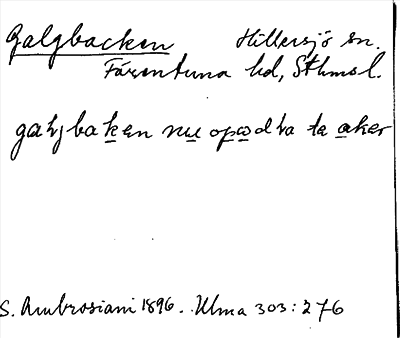 Galgbacken Hillersjö sn.
Färentuna hd, Sthmsl.
galjbaken nu opodla ta aker
S. Ambrosiani 1896. Ulma 303:276